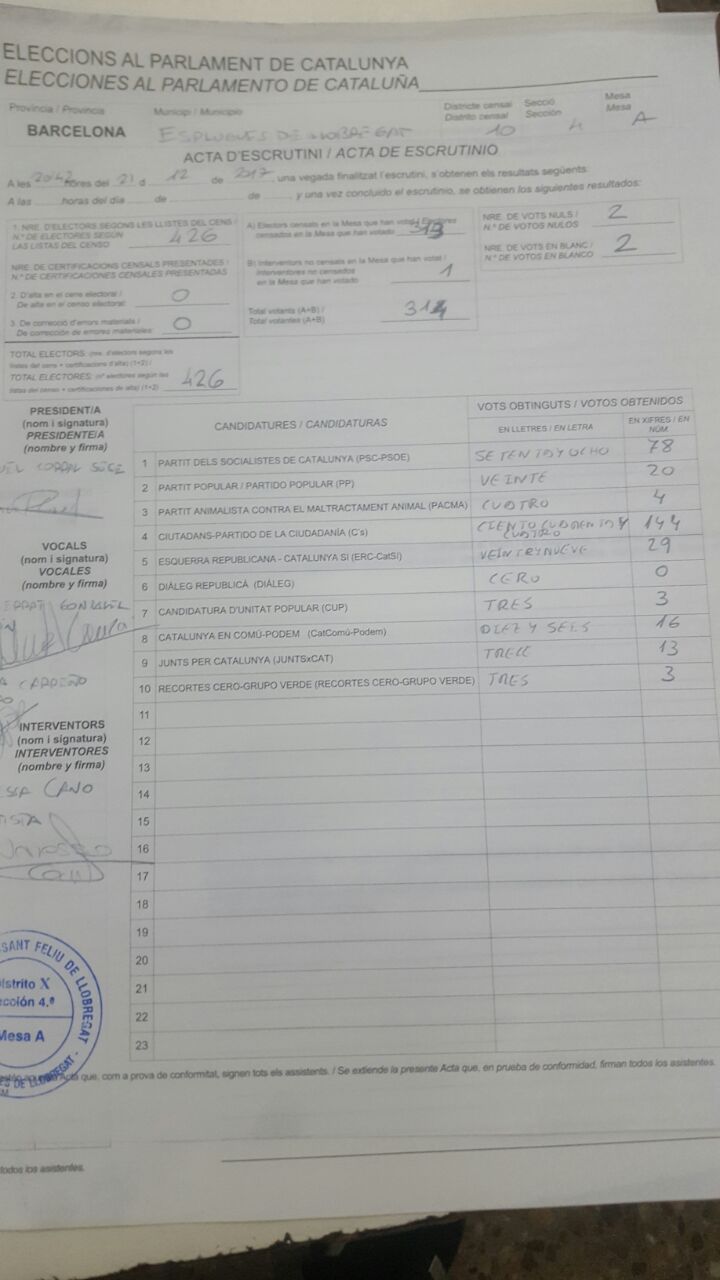 ELECCIONS AL PARLAMENT DE CATALUNYA
ELECCIONES AL PARLAMENTO DE CATALUÑA
Província / Provincia Municipi / Municipio Districte censal Secció Mesa
Distrito censal Sección Mesa
BARCELONA ESPLUGUES DE LLOBREGAT 10 4 A
ACTA D'ESCRUTINI / ACTA DE ESCRUTINIO
A les 20:47 hores del 21 d 12 de 2017, una vegada finalitzat l'escrutini, s'obtenen els resultats següents:
A las horas del día de de , y una vez concluido el escrutinio, se obtienen los siguientes resultados:
1. NRE. D'ELECTORS SEGONS LES LLISTES DEL CENS /
N.º DE ELECTORES SEGÚN
LAS LISTAS DEL CENSO 426
NRE. DE CERTIFICACIONS CENSALS PRESENTADES /
N.º DE CERTIFICACIONES CENSALES PRESENTADAS
2. D'alta en el cens electoral /
De alta en el censo electoral: 0
3. De correcció d'errors materials /
De corrección de errores materiales: 0
TOTAL ELECTORS: (nre. d'electors segons les
llistes del cens + certificacions d'alta) (1+2) /
TOTAL ELECTORES: (nº electores según las
listas del censo + certificaciones de alta) (1+2) 426
A) Electors censats en la Mesa que han votat / Electores
censados en la Mesa que han votado 313
B) Interventors no censats en la Mesa que han votat /
Interventores no censados
en la Mesa que han votado 1
Total votants (A+B) /
Total votantes (A+B) 314
NRE. DE VOTS NULS /
N.º DE VOTOS NULOS 2
NRE. DE VOTS EN BLANC /
N.º DE VOTOS EN BLANCO 2
PRESIDENT/A
(nom i signatura)
PRESIDENTE/A
(nombre y firma)
VOCALS
(nom i signatura)
VOCALES
(nombre y firma)
INTERVENTORS
(nom i signatura)
INTERVENTORES
(nombre y firma)
CANO
CANDIDATURES / CANDIDATURAS VOTS OBTINGUTS / VOTOS OBTENIDOS
EN LLETRES / EN LETRA EN XIFRES / EN NÚM.
1 PARTIT DELS SOCIALISTES DE CATALUNYA (PSC-PSOE) SETENTA Y OCHO 78
2 PARTIT POPULAR / PARTIDO POPULAR (PP) VEINTE 20
3 PARTIT ANIMALISTA CONTRA EL MALTRACTAMENT ANIMAL (PACMA) CUATRO 4
4 CIUTADANS-PARTIDO DE LA CIUDADANÍA (C's) CIENTO CUARENTA Y CUATRO 144
5 ESQUERRA REPUBLICANA - CATALUNYA SÍ (ERC-CatSí) VEINTRYNUEVE 29
6 DIÀLEG REPUBLICÀ (DIÀLEG) CERO 0
7 CANDIDATURA D'UNITAT POPULAR (CUP) TRES 3
8 CATALUNYA EN COMÚ-PODEM (CatComú-Podem) DIEZ Y SEIS 16
9 JUNTS PER CATALUNYA (JUNTSxCAT) TRECE 13
10 RECORTES CERO-GRUPO VERDE (RECORTES CERO-GRUPO VERDE) TRES 3
11
12
13
14
15
16
17
18
19
20
21
22
23
SANT FELIU DE LLOBREGAT
Distrito X
Sección 4.ª
Mesa A
Acta que, com a prova de conformitat, signen tots els assistents. / Se extiende la presente Acta que, en prueba de conformidad, firman todos los asistentes.
todos los asistentes.